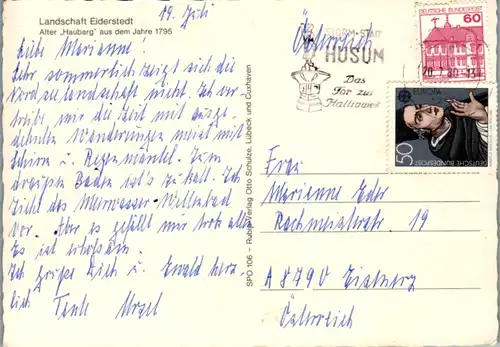 Landschaft Eiderstedt
Alter „Hauberg" aus dem Jahre 1795
19. Juli
Liebe Marianne!
Sehr sommerlich zeigt sich die
Nordseelandschaft nicht. Ich ver-
treibe mir die Zeit mit ausge-
dehnten Wanderungen meist mit
Schirm u. Regenmantel. Zum
draußen Baden ist's zu kalt. Ich
ziehe das Meerwasser-Wellenbad
vor. Aber es gefällt mir trotz allem
Es ist erholsam.
Ich grüße Dich u. Ewald herz
lich Tante
SPO 106 – Rubin-Verlag Otto Schulze, Lübeck und Cuxhaven
HUSUM
Das
Tor zur
Halligwelt
DEUTSCHE BUNDESPOST
60
EUROPA
50
DEUTSCHE BUNDESPOST
Frau
Marianne
19
A 8790 Eisenerz
Österreich